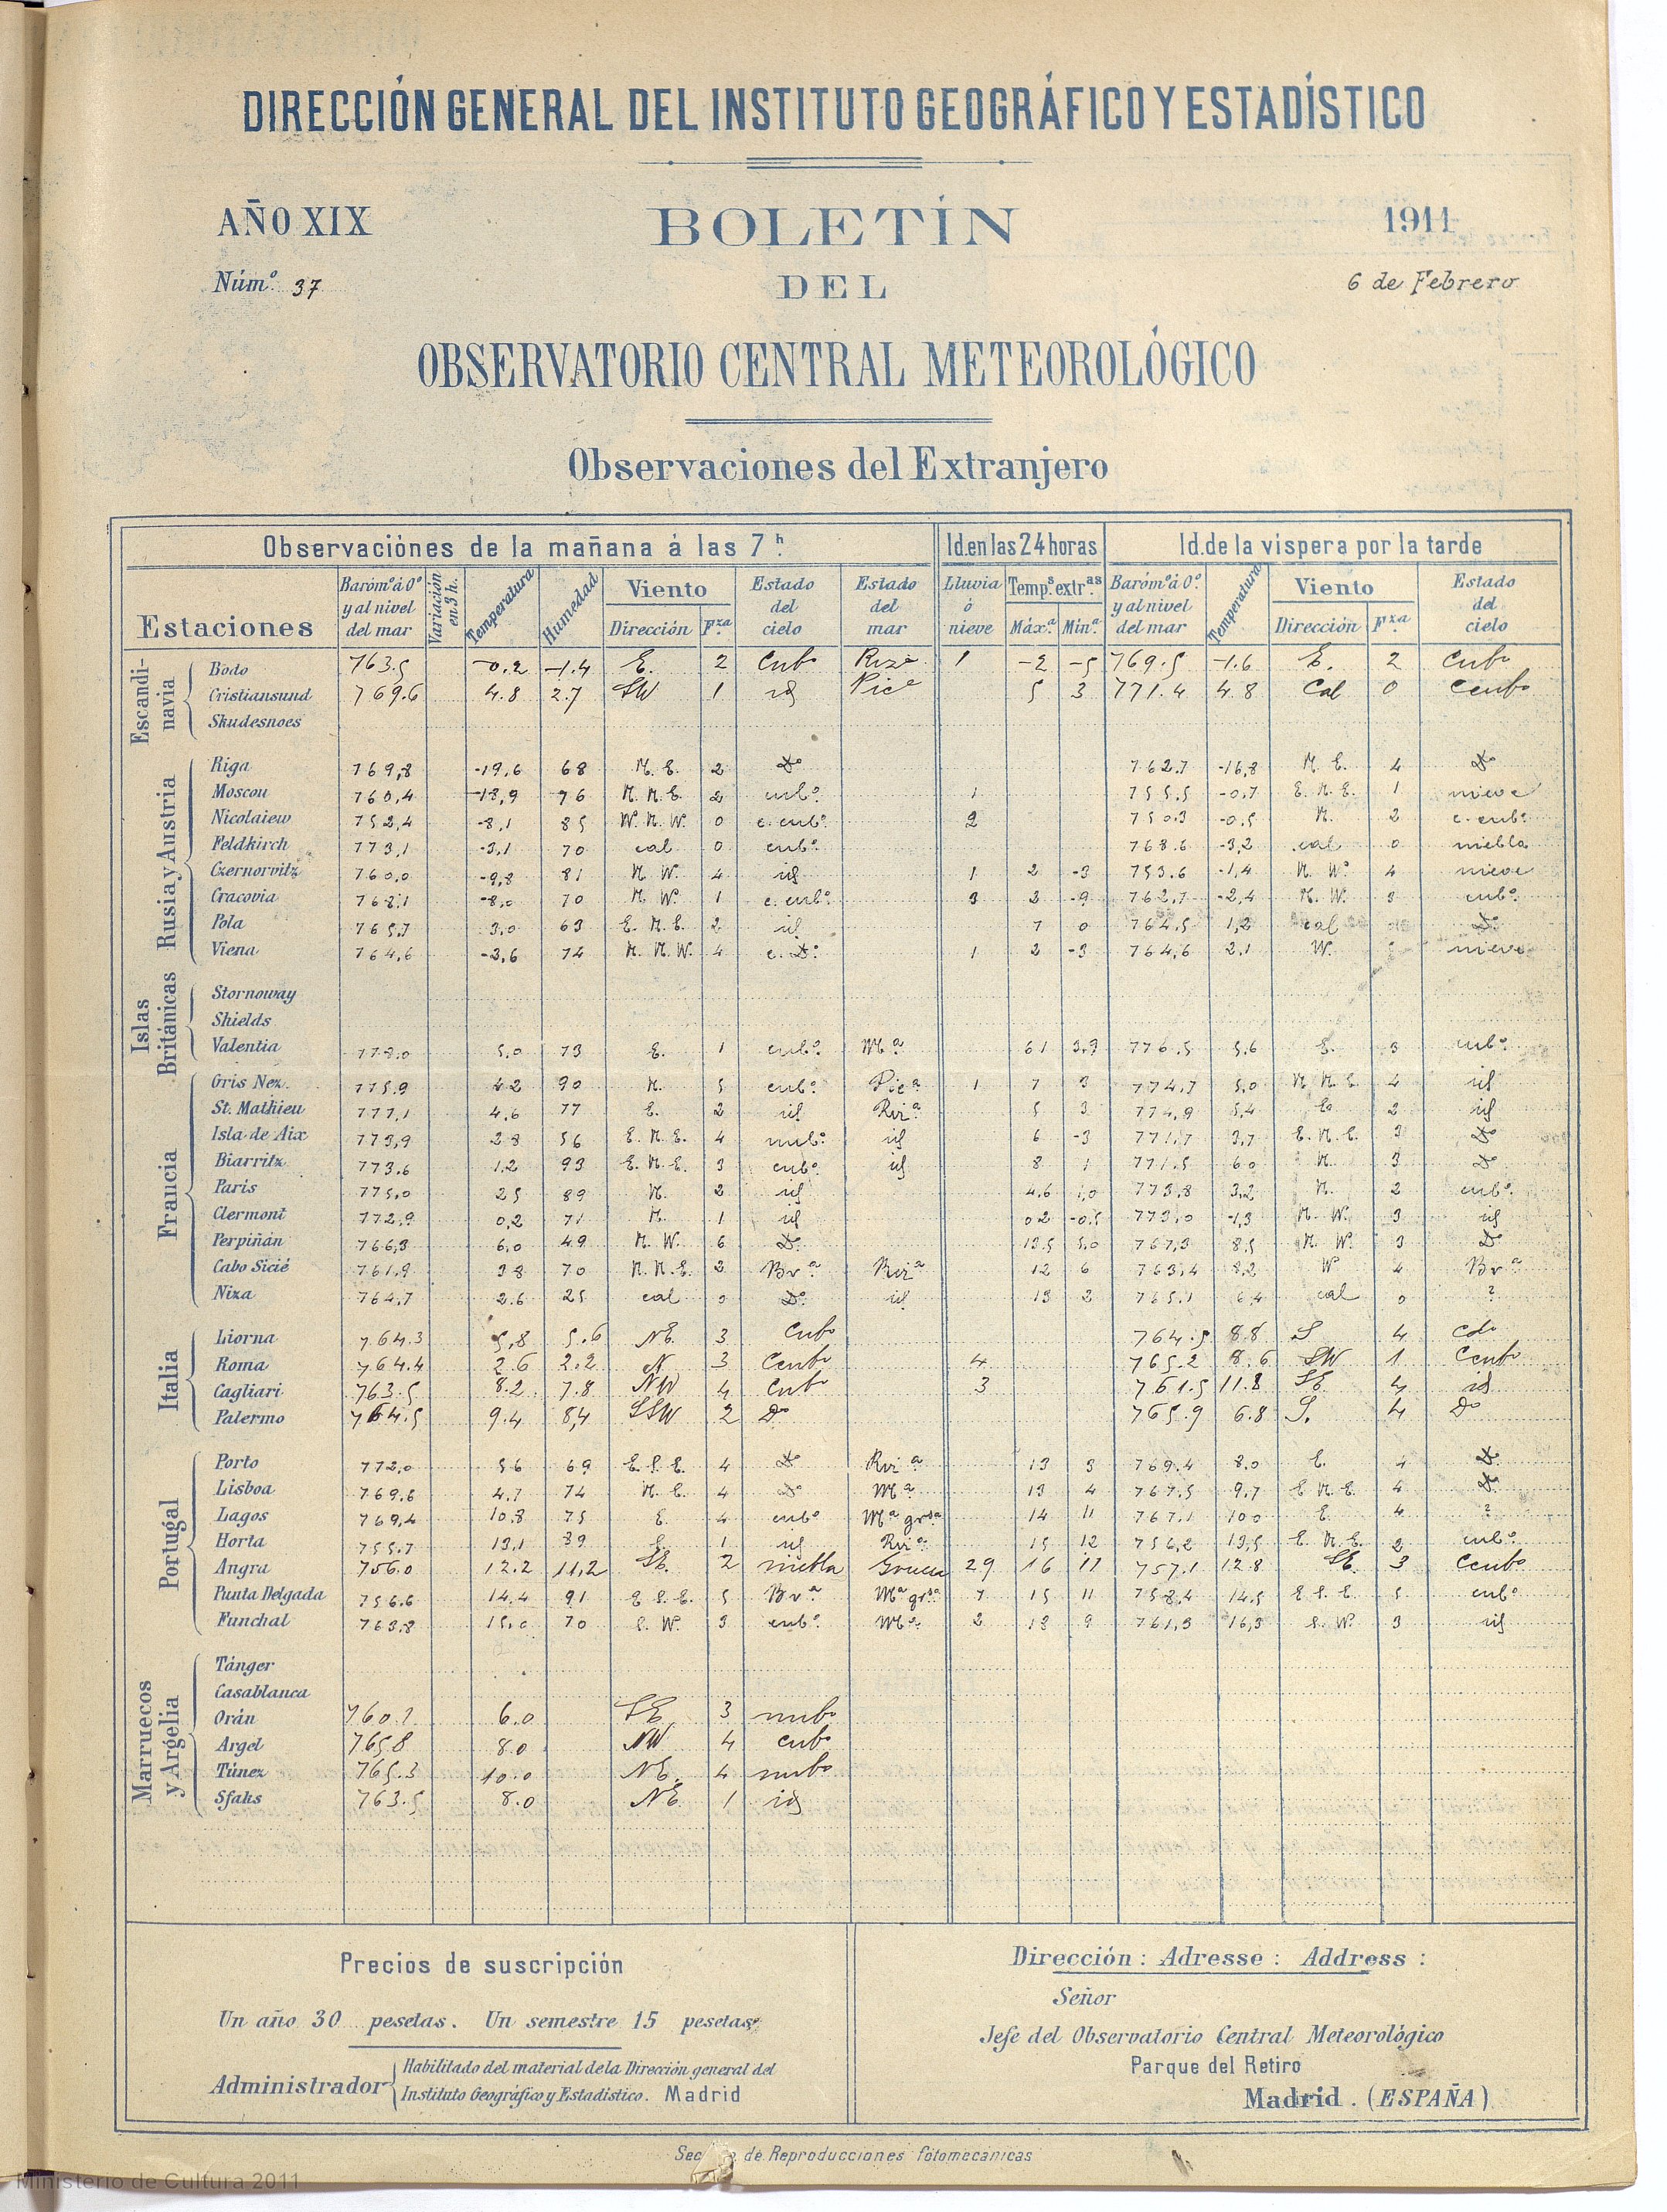 DIRECCIÓN GENERAL DEL INSTITUTO GEOGRÁFICO Y ESTADÍSTICO
AÑO XIX BOLETÍN 1911
Núm.º 37 DEL 6 de Febrero
OBSERVATORIO CENTRAL METEOROLÓGICO
Observaciones del Extranjero
Observaciónes de la mañana á las 7 h. Id. en las 24 horas Id. de la vispera por la tarde
Estaciones Baróm.º á 0º y al nivel del mar Variación en 3 h. Temperatura Humedad Viento Dirección F.za Estado del cielo Estado del mar Lluvia ò nieve Temp.s extr.as Máx.a Min.a Baróm.º á 0º y al nivel del mar Temperatura Viento Dirección F.xa Estado del cielo
Escandinavia
Bodo 763.5 -0.2 -1.4 E. 2 Cubº Riza 1 -2 -5 769.5 -1.6 E. 2 Cubº
Cristiansund 769.6 4.8 2.7 SW 1 id Picª 5 3 771.4 4.8 Cal 0 Ccubº
Skudesnoes
Rusia y Austria
Riga 769,8 -19,6 68 N. E. 2 Dº 762.7 -16,8 N. E. 4 Dº
Moscou 760,4 -18,9 96 N. N. E. 2 cubº 1 755.5 -0,7 E. N. E. 1 nieve
Nicolaiew 752,4 -8,1 85 W. N. W. 0 c. cubº 2 750.3 -0.5 N. 2 c. cubº
Feldkirch 773,1 -3,1 70 cal 0 cubº 768.6 -3,2 cal 0 niebla
Czernorvitz 760,0 -9,8 81 N W. 4 id 1 2 -3 753.6 -1,4 N. W. 4 nieve
Cracovia 768,1 -8,0 70 N W. 1 c. cubº 3 2 -9 762,7 -2,4 N. W. 3 cubº
Pola 765,7 3,0 63 E. N. E. 2 id 7 0 764,5 1,2 cal Dº
Viena 764,6 -3,6 74 N. N. W. 4 c. Dº 1 2 -3 764,6 2,1 W. nieve
Islas Británicas
Stornoway
Shields
Valentia 778.0 5,0 73 E. 1 cubº Mª 61 3,3 776.5 5,6 E. 3 cubº
Francia
Gris Nez 775.9 42 90 N. 5 cubº Picª 1 7 3 774,7 5,0 N. N. E. 4 id
St. Mathieu 777,1 4.6 77 E. 2 id Rizª 5 3 774,9 5,4 E. 2 id
Isla de Aix 773,9 28 56 E. N. E. 4 nubº id 6 -3 771,7 3,7 E. N. E. 3 Dº
Biarritz 773.6 1,2 93 E. N. E. 3 cubº id 8 1 771.5 60 N. 3 Dº
Paris 775.0 25 89 N. 2 id 4,6 1,0 773,8 3,2 N. 2 cubº
Clermont 772,9 0,2 71 N. 1 id 02 -0.5 773,0 -1,3 N. W. 3 id
Perpiñán 766,3 6,0 49 N. W. 6 Dº 13.5 5,0 767,3 8,5 N. W. 3 Dº
Cabo Sicié 761,9 38 70 N. N. E. 2 Brª Rizª 12 6 763,4 8,2 W 4 Brª
Niza 764,7 2.6 25 cal 0 Dº id 13 2 765,1 6,4 cal 0 ?
Italia
Liorna 764.3 5,8 5.6 NE. 3 Cubº 764.5 8.8 S 4
Roma 764.4 2.6 2.2 N 3 Ccubº 4 765.2 8.6 SW 1 Ccubº
Cagliari 763.5 8.2 7.8 NW 4 Cubº 3 761.5 11.8 SE. 4 id
Palermo 764.5 9.4 8,4 SSW 2 Dº 765.9 6.8 S. 4 Dº
Portugal
Porto 772,0 56 69 E. S. E. 4 Dº Rizª 13 3 769.4 8.0 E. 4 Dº
Lisboa 769.6 4.7 74 N. E. 4 Dº Mª 13 4 767.5 9,7 E N. E. 4 Dº
Lagos 769,4 10.8 75 E. 4 cubº Mª grsª 14 11 767,1 100 E. 4 ?
Horta 755.7 13,1 89 E. 1 id Rizª 15 12 756,2 13,5 E. N. E. 2 cubº
Angra 756.0 12.2 11,2 SE. 2 niebla Gruesa 29 16 11 757.1 12.8 SE. 3 Ccubº
Punta Delgada 756.6 14.4 91 E S. E. 5 Brª Mª grsª 7 15 11 758,4 14.5 E S. E. 5 cubº
Funchal 763,8 15,0 70 S. W. 3 cubº Mª 2 18 9 761,3 16,3 S. W. 3 id
Marruecos y Argelia
Tánger
Casablanca
Orán 760.1 6.0 SE 3 nubº
Argel 765.8 8.0 NW 4 Cubº
Túnez 765.3 10.0 NE. 4 nubº
Sfaks 763.5 8.0 NE 1 id
Precios de suscripción
Un año 30 pesetas. Un semestre 15 pesetas.
Administrador Habilitado del material de la Dirección general del
Instituto Geográfico y Estadistico. Madrid
Dirección : Adresse : Address :
Señor
Jefe del Observatorio Central Meteorológico
Parque del Retiro
Madrid . (ESPAÑA)
de Reproducciones fotomecánicas
Ministerio de Cultura 2011